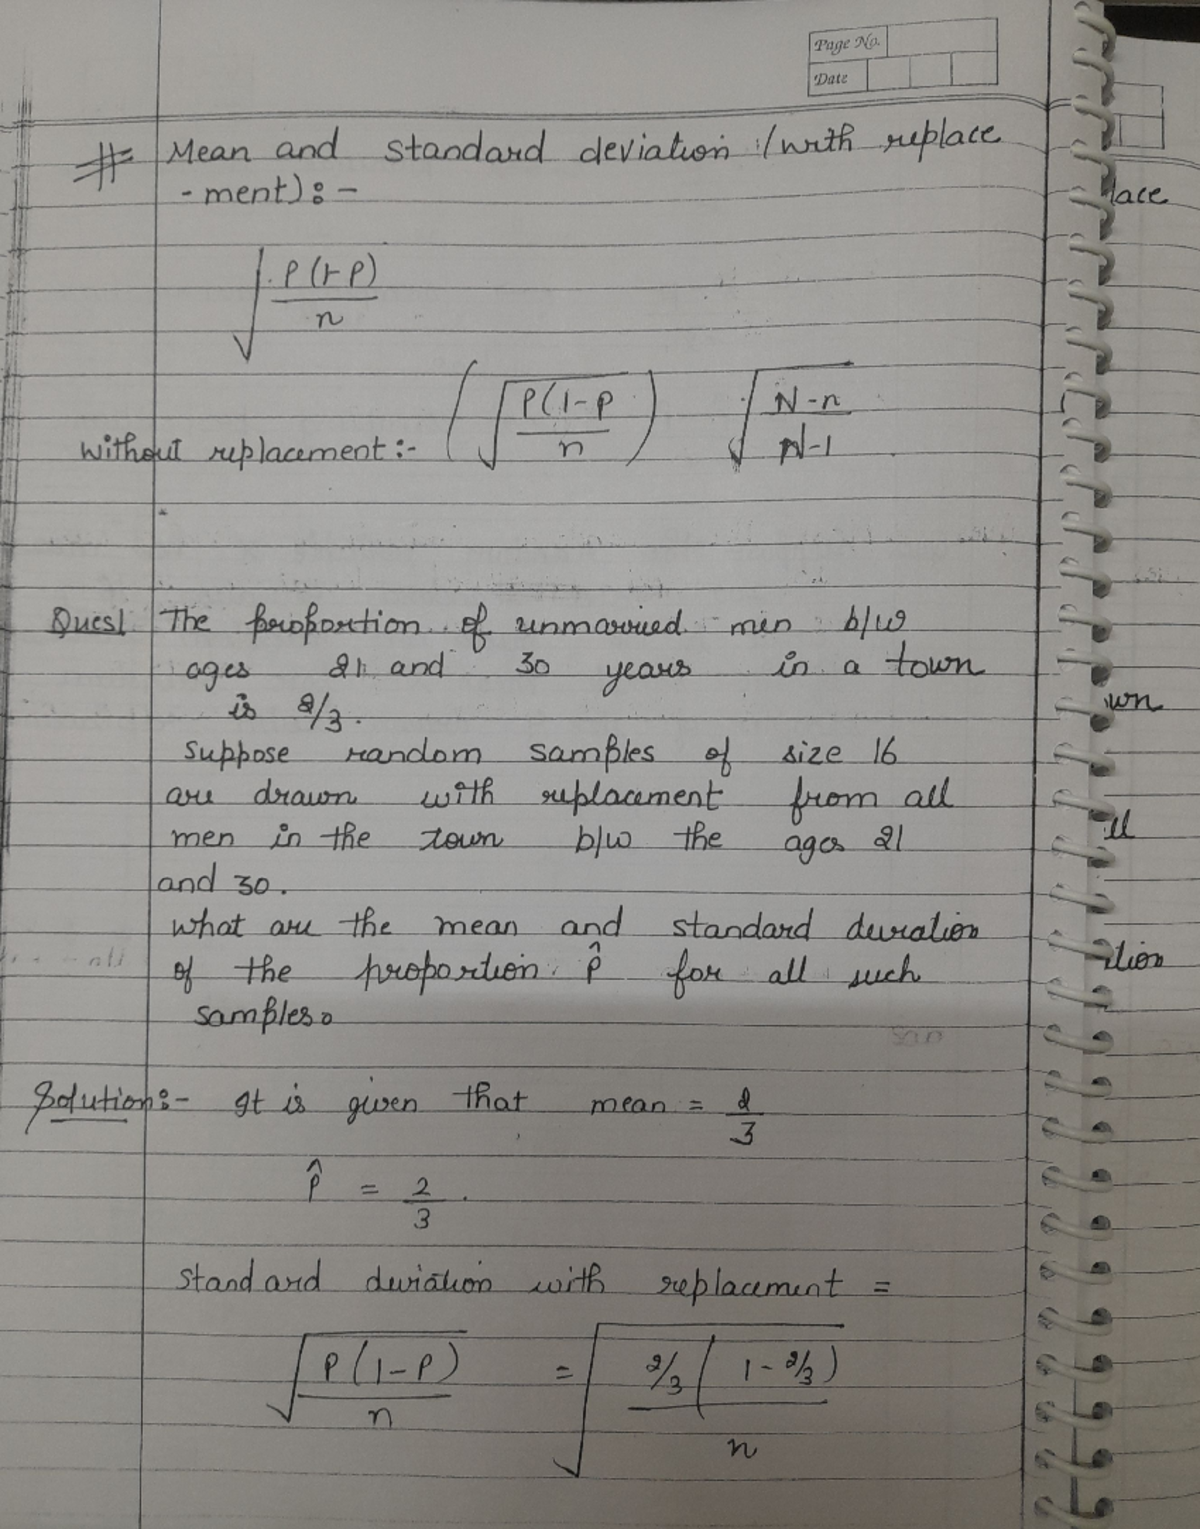 Page No.
Date
# Mean and standard deviation :(with replace
-ment):-
√(P(1-P)/n)
without replacement:- (√(P(1-P/n)) √(N-n/N-1)
Ques1 The proportion of unmarried men b/w
ages 21 and 30 years in a town
is 2/3.
suppose random samples of size 16
are drawn with replacement from all
men in the town b/w the ages 21
and 30.
what are the mean and standard deviation
of the proportion p̂ for all such
samples.
Solution:- It is given that mean = 2/3
p̂ = 2/3.
standard deviation with replacement =
√(P(1-P)/n) = √(2/3(1-2/3)/n)
lace
wn
ll
tion